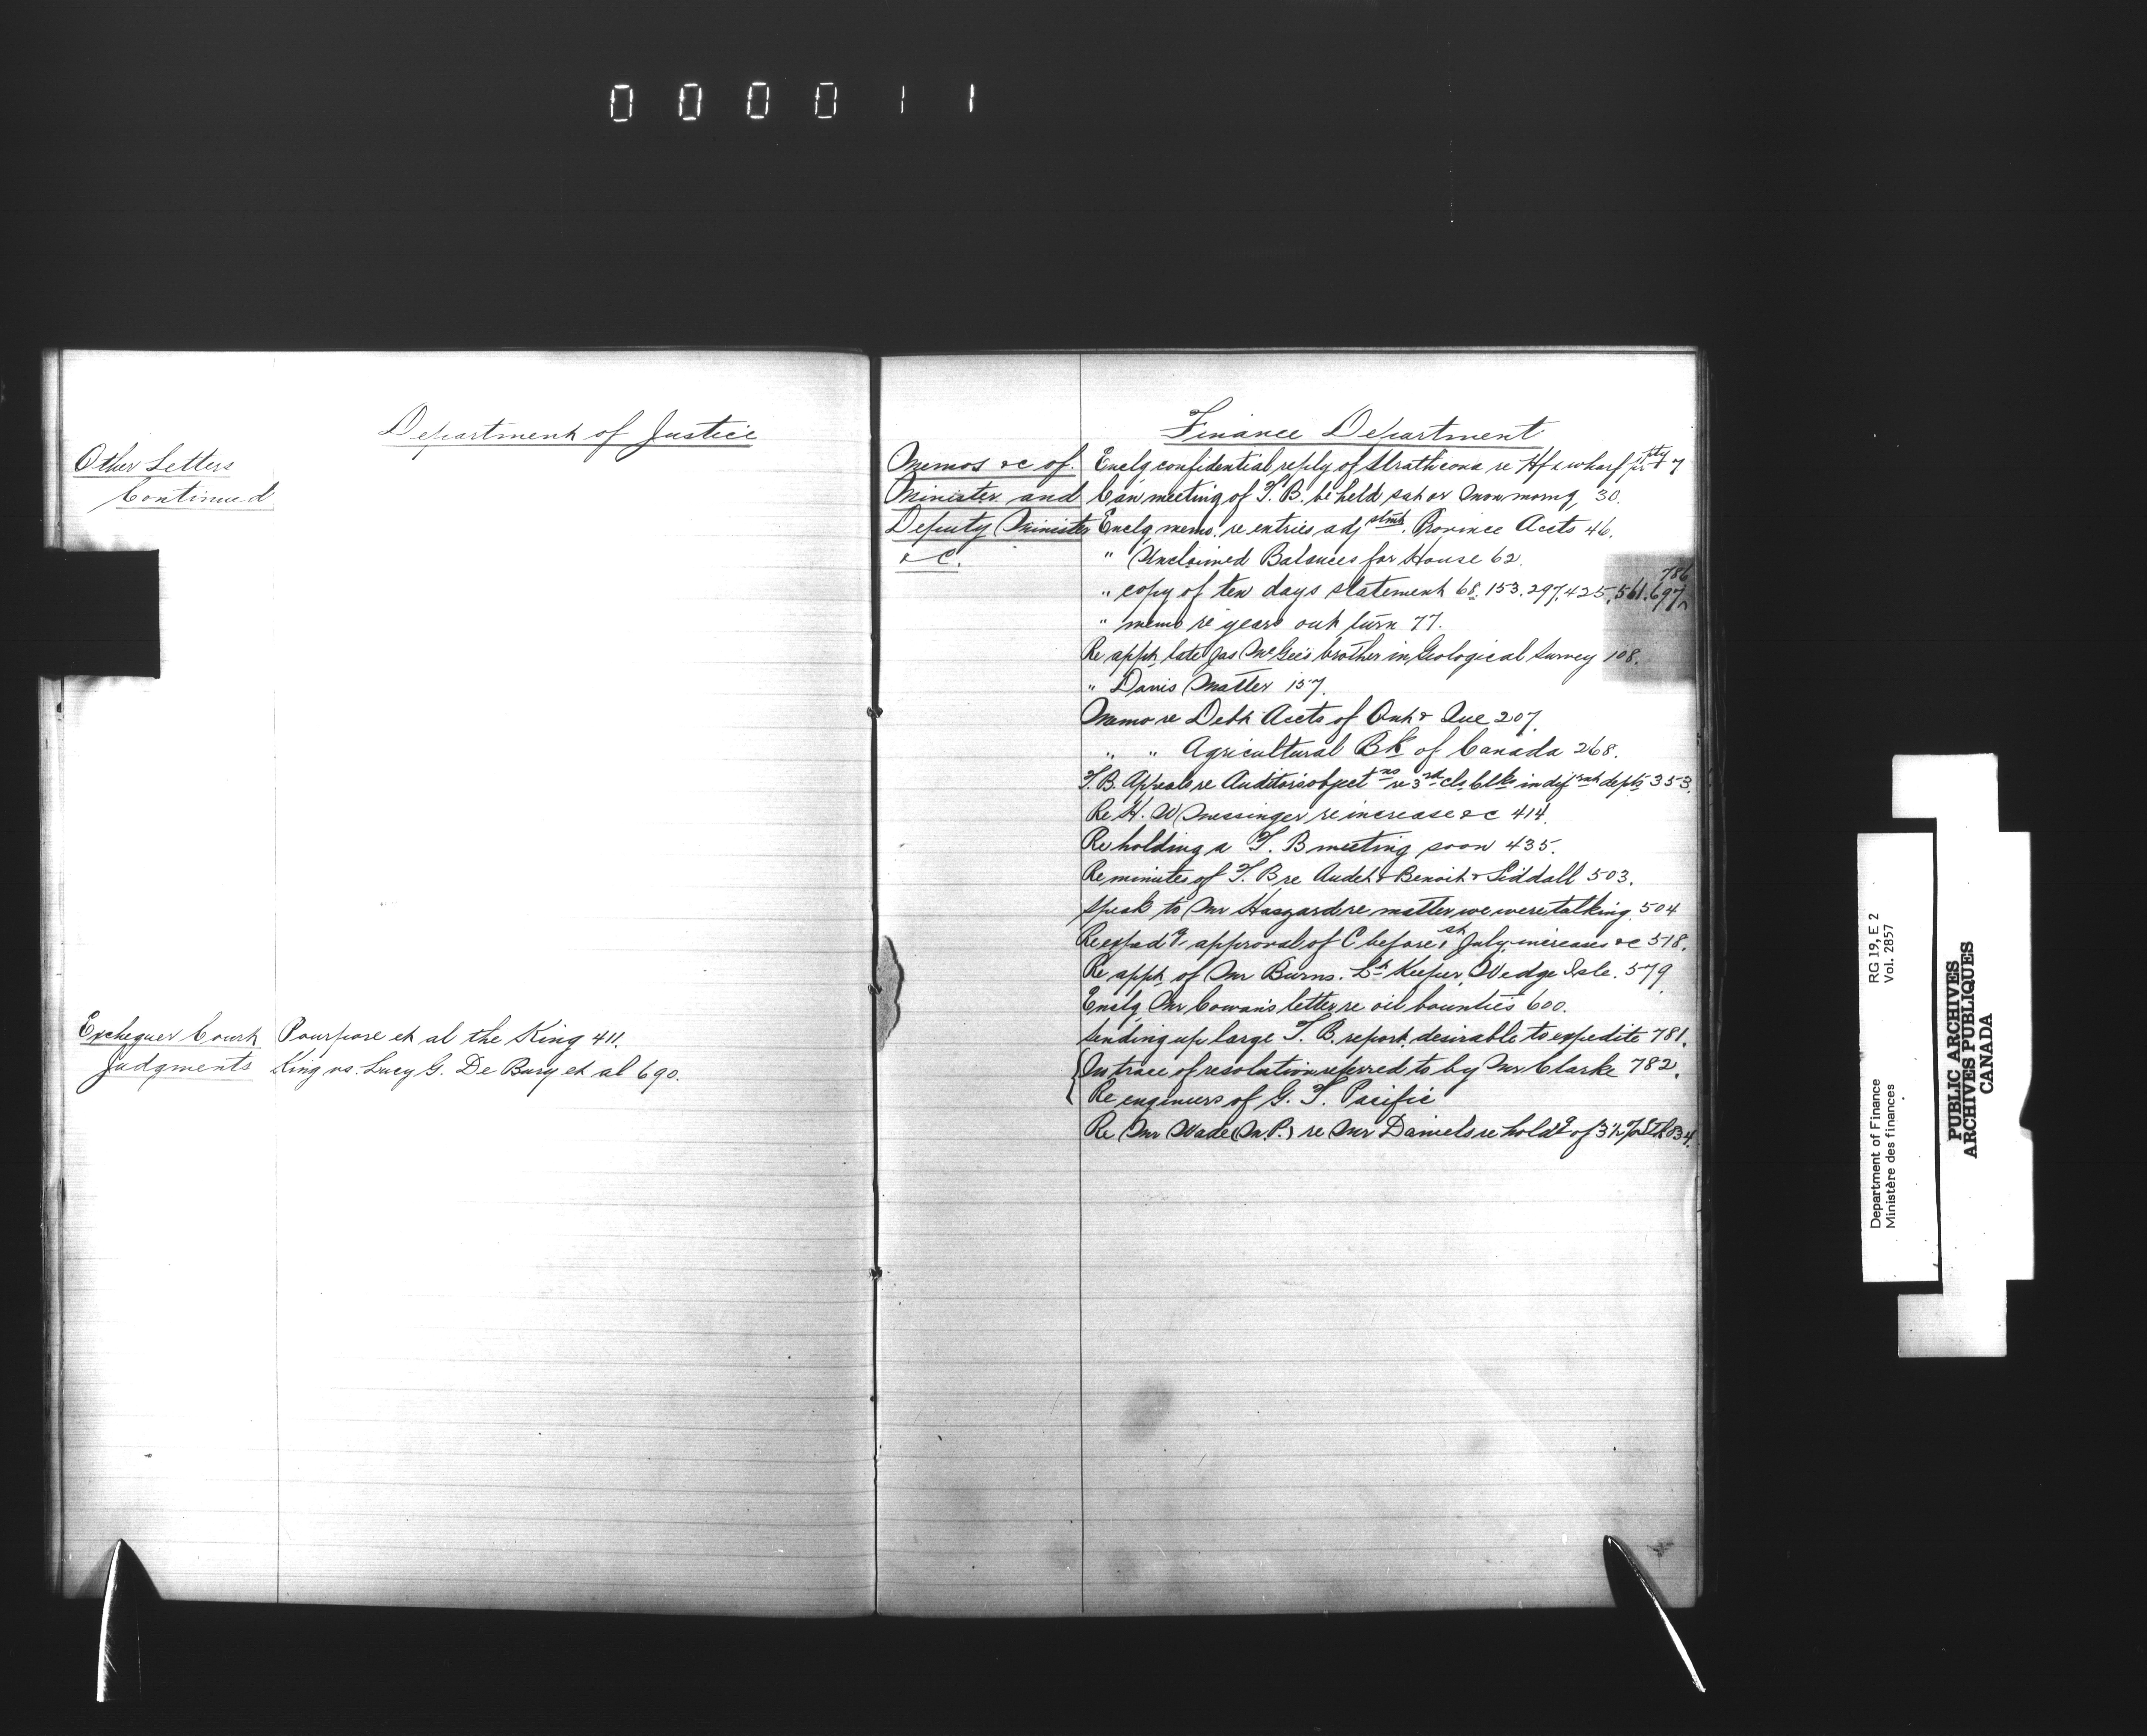 000011
Department of Justice
Other Letters
Continued
Exchequer Court Pourpore et al the King 411.
Judgments King vs. Lucy G. De Bury et al 690.
Finance Department
Memos &c of
Minister and
Deputy Minister
&C.
Enclg confidential reply of Strathcona re Hfx wharf prpty 7
Can meeting of T. B. be held sat or Mon morng, 30.
Enclg memo. re entries adjstmt. Province Accts 46.
" Unclaimed Balances for House 62.
" copy of ten days statement 68. 153. 297. 425. 561. 697 786
" memo re years out turn 77.
Re appt. late Jas McGee's brother in Geological Survey 108.
" Davis Matter 157.
Memo re Debt Accts of Ont & Que 207.
" " Agricultural Bk of Canada 268.
T. B. Appeals re Auditors objectns re 3rd cls Clks in difrnt depts 353.
Re H. W Messinger re increase &c 414.
Re holding a T. B meeting soon 435.
Re minutes of T. B re Audet & Benoit & Siddall 503.
Speak to Mr Haszard re matter we were talking. 504
Re approval of C before 1st July, increases &c 518.
Re appt. of Mr Burns. Lt Keeper, Wedge Isle. 579
Enclg Mr Cowan's letter re oil bounties 600.
Sending up large T. B. report, desirable to expedite 781.
On trace of resolution referred to by Mr Clarke 782.
Re engineers of G. T. Pacific
Re Mr Wade (M.P.) re Mr Daniels re holdg of 3½% Stk 834.
Department of Finance RG 19, E 2
Ministère des finances Vol. 2857
PUBLIC ARCHIVES
ARCHIVES PUBLIQUES
CANADA